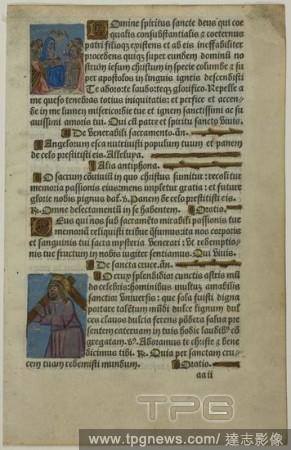 Omine spiritus sancte deus qui coe
qualis consubstantialis & coeternus
patri filioq; existens et ab eis ineffabiliter
procedens quiq; super eundem dominū no
strum iesum christum in specie columbe & su
per apostolos in linguis igneis descendisti
Te adoro: te laudo: teq; glorifico. Repelle a
me queso tenebras totius iniquitatis: et perfice et accen
de in me lumen misericordie tue et ignem sanctissimi ac su
auissimi amoris tui. Qui cū patre et spiritu sancto viuis.
De venerabili sacramento. añ.
Angelorum esca nutriuisti populum tuum et panem
de celo prestitisti eis. Alleluya.
Alia antiphona.
O sacrum cōuiuiū in quo christus sumitur: recolitur
memoria passionis eius: mens impletur gratia: et future
glorie nobis pignus daf. v. Panem de celo prestitisti eis.
R. Omne delectamentū in se habentem. Oratio.
Eus qui nobis sub sacramēto mirabili passionis tue
memoriā reliquisti tribue qūsumus: ita nos corporis
et sanguinis tui sacra mysteria venerari: vt redemptio
nis tue fructum in nobis iugiter sentiamus. Qui viuis.
De sancta cruce. añ.
O crux splendidior cunctis astris mū
do celebris: hominibus multuȝ amabilis
sanctior vniuersis: que sola fuisti digna
portare talētum mūdi dulce lignum dul
ces clauos dulcia ferens pōdera salua pre
sentem cateruam in tuis hodie laudibȝ cō
gregatam. v. Adoramus te christe & bene
dicimus tibi. R. Quia per sanctam cru
cem tuam redemisti mundum. Oratio.
aa ii
TPG
www.tpgnews.com / 達志影像